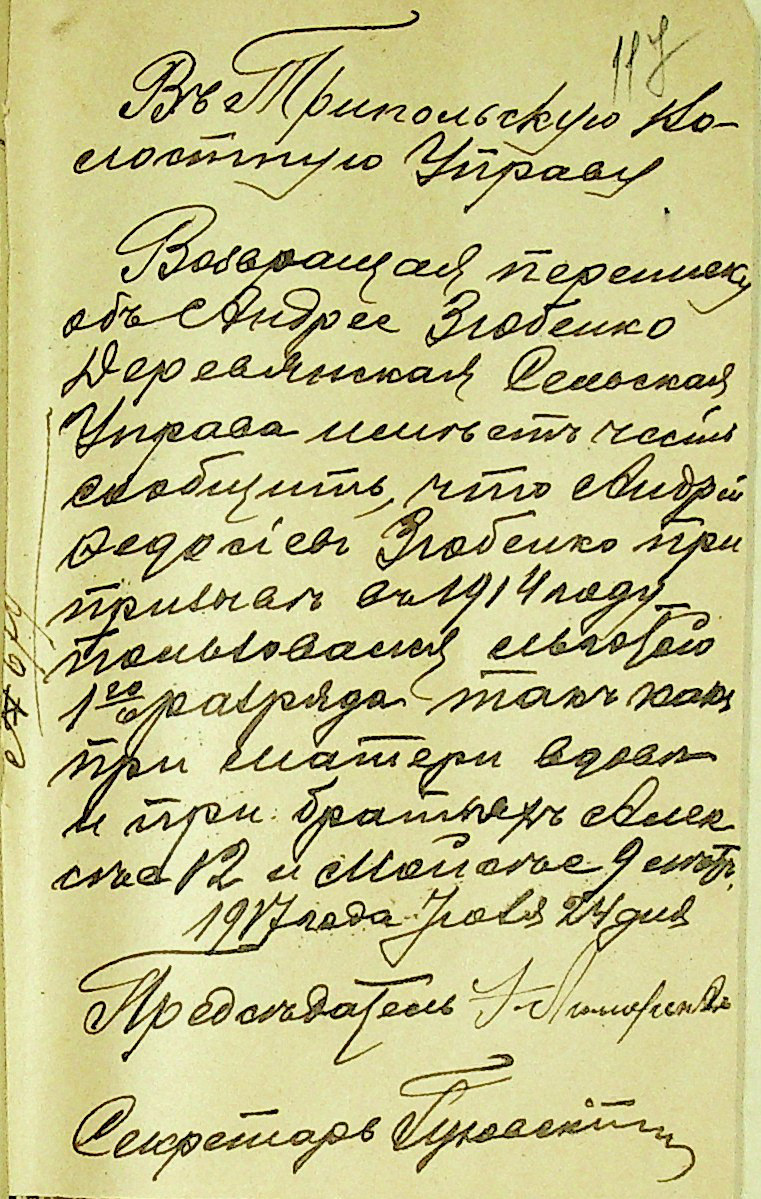 117
Въ Трипольскую Во-
лостную Управу
Возвращая переписку
объ Андрее Зюбенко
Деревянская Сельская
Управа имѣетъ честь
сообщить, что Андрей
Ѳедосіевъ Зюбенко при
призывѣ въ 1914 году
пользовался льготою
1го разряда такъ какъ
при матери вдовѣ
и при братьяхъ Алек
сѣе 12 и Мойсѣе 9 лѣтъ.
1917 года Іюля 24 дня
Председатель
Секретарь